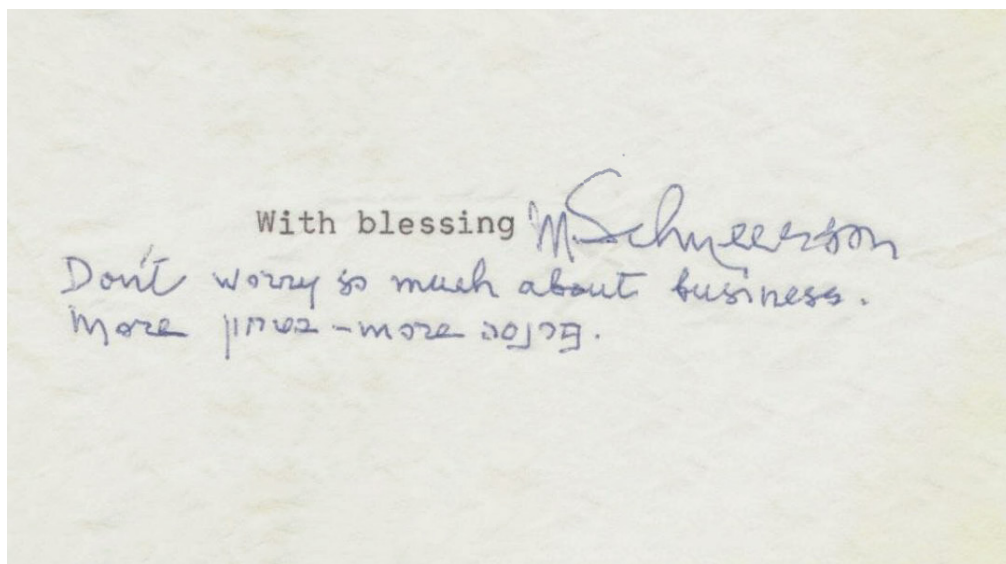 With blessing M. Schneerson
Don't worry so much about business.
More בטחון – more פרנסה.